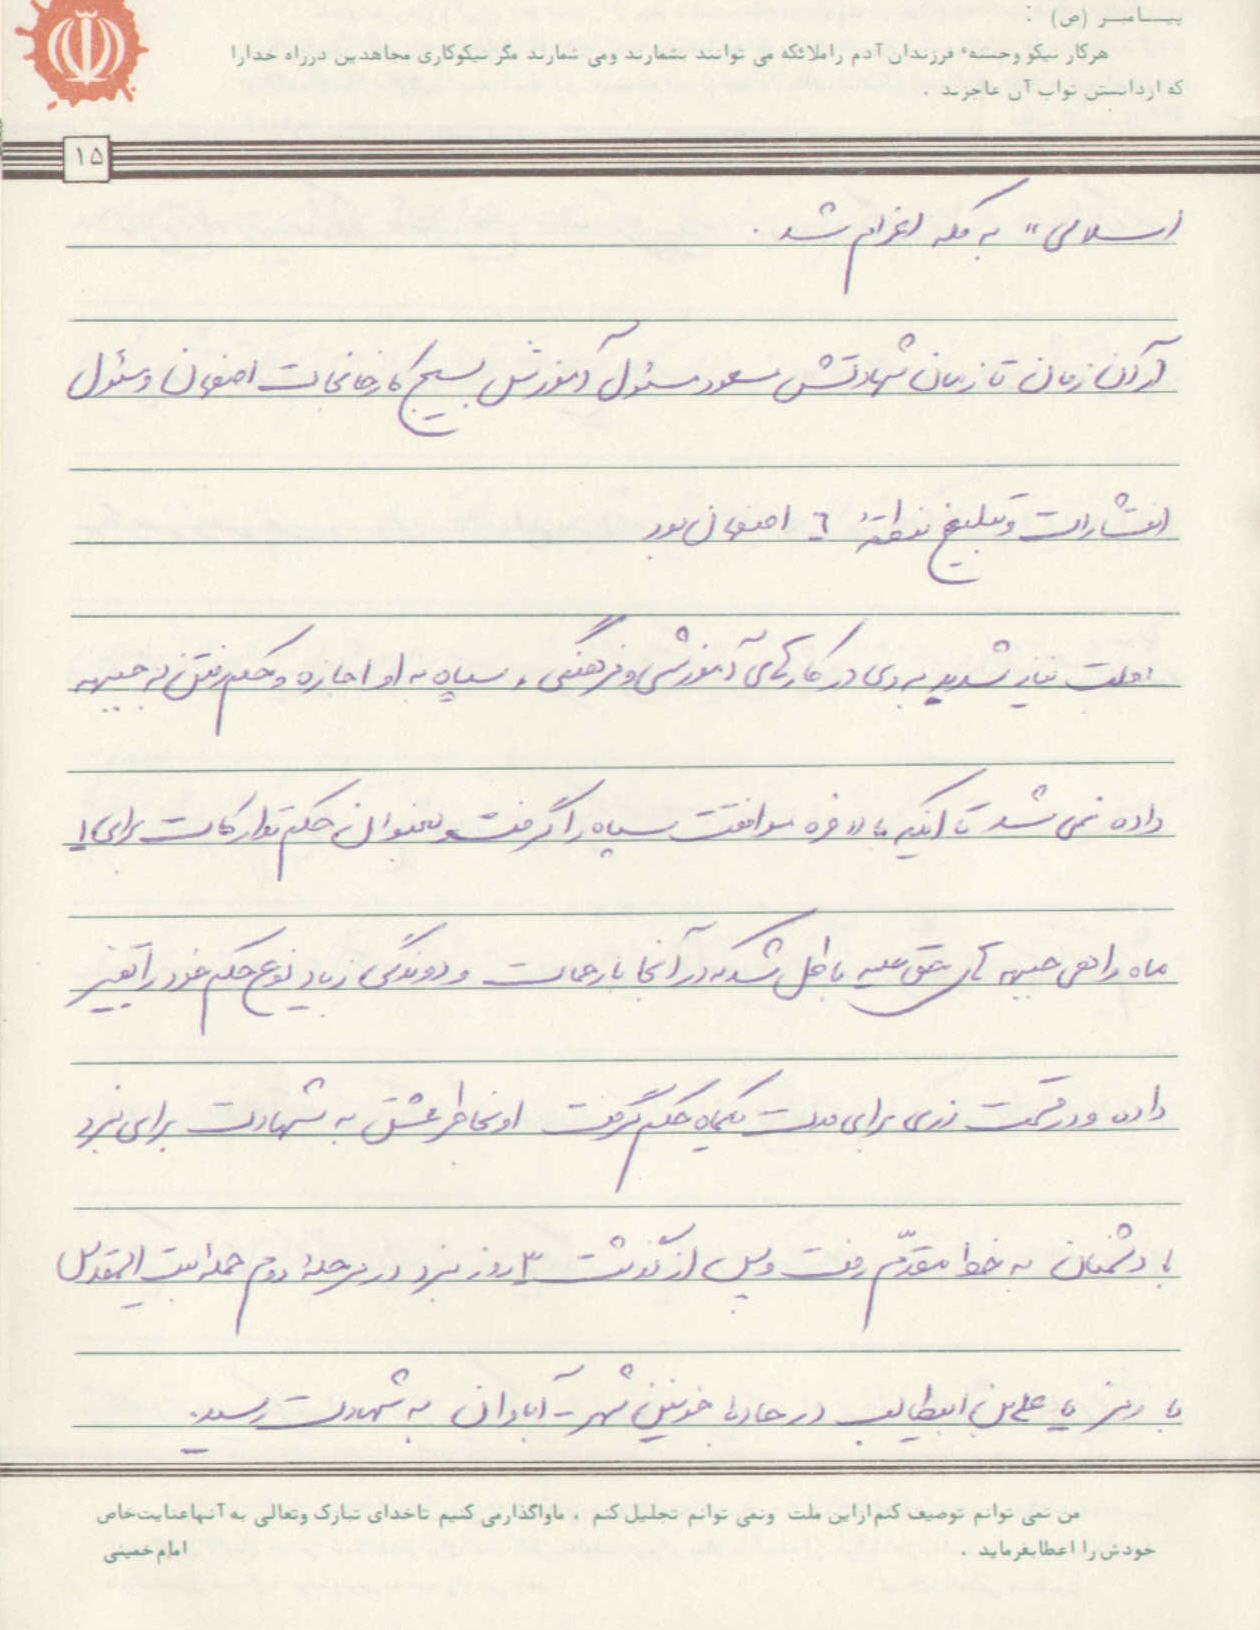 پیـــامبـــر (ص) :
هرکار نیکو وحسنهٔ فرزندان آدم راملائکه می توانند بشمارند ومی شمارند مگر نیکوکاری مجاهدین درراه خدارا
که ازدانستن ثواب آن عاجزند .
۱۵
اسلامی" به مکه اعزام شد .
از آن زمان تا زمان شهادتش مسعود مسئول آموزش بسیج کارخانجات اصفهان و مسئول
انتشارات و تبلیغ منطقهٔ ٦ اصفهان بود
بعلت نیاز شدید به وی در کارهای آموزشی و فرهنگی ، سپاه به او اجازه و حکم رفتن به جبهه
داده نمی شد تا اینکه بالاخره موافقت سپاه را گرفت و بعنوان حکم تدارکات برای ۱
ماه راهی جبهه های حق علیه باطل شد که در آنجا با زحمات و دوندگی زیاد نوع حکم خود را تغییر
داده و در قسمت رزمی برای مدت یکماه حکم گرفت او بخاطر عشق به شهادت برای نبرد
با دشمنان به خط مقدّم رفت و پس از گذشت ۳ روز نبرد در مرحلهٔ دوم حمله بیت المقدس
با رمز یا علی بن ابیطالب در جادهٔ خونین شهر - آبادان به شهادت رسید.
من نمی توانم توصیف کنم ازاین ملت ونمی توانم تجلیل کنم ، ماواگذارمی کنیم تاخدای تبارک وتعالی به آنهاعنایت‌خاص
خودش را اعطابفرماید . امام خمینی